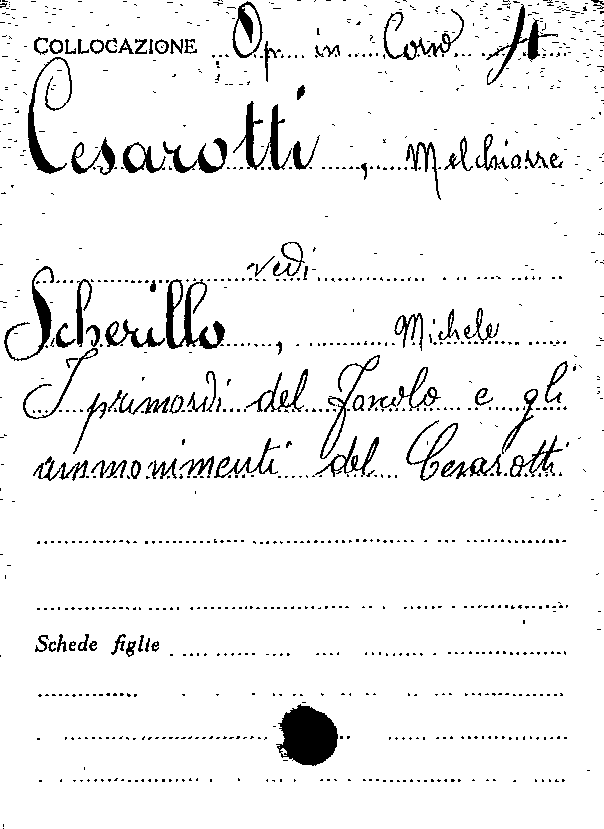 COLLOCAZIONE Op. in
Cesarotti, Melchiorre
vedi
Scherillo, Michele
I primordi del Foscolo e gli
ammonimenti del Cesarotti
Schede figlie